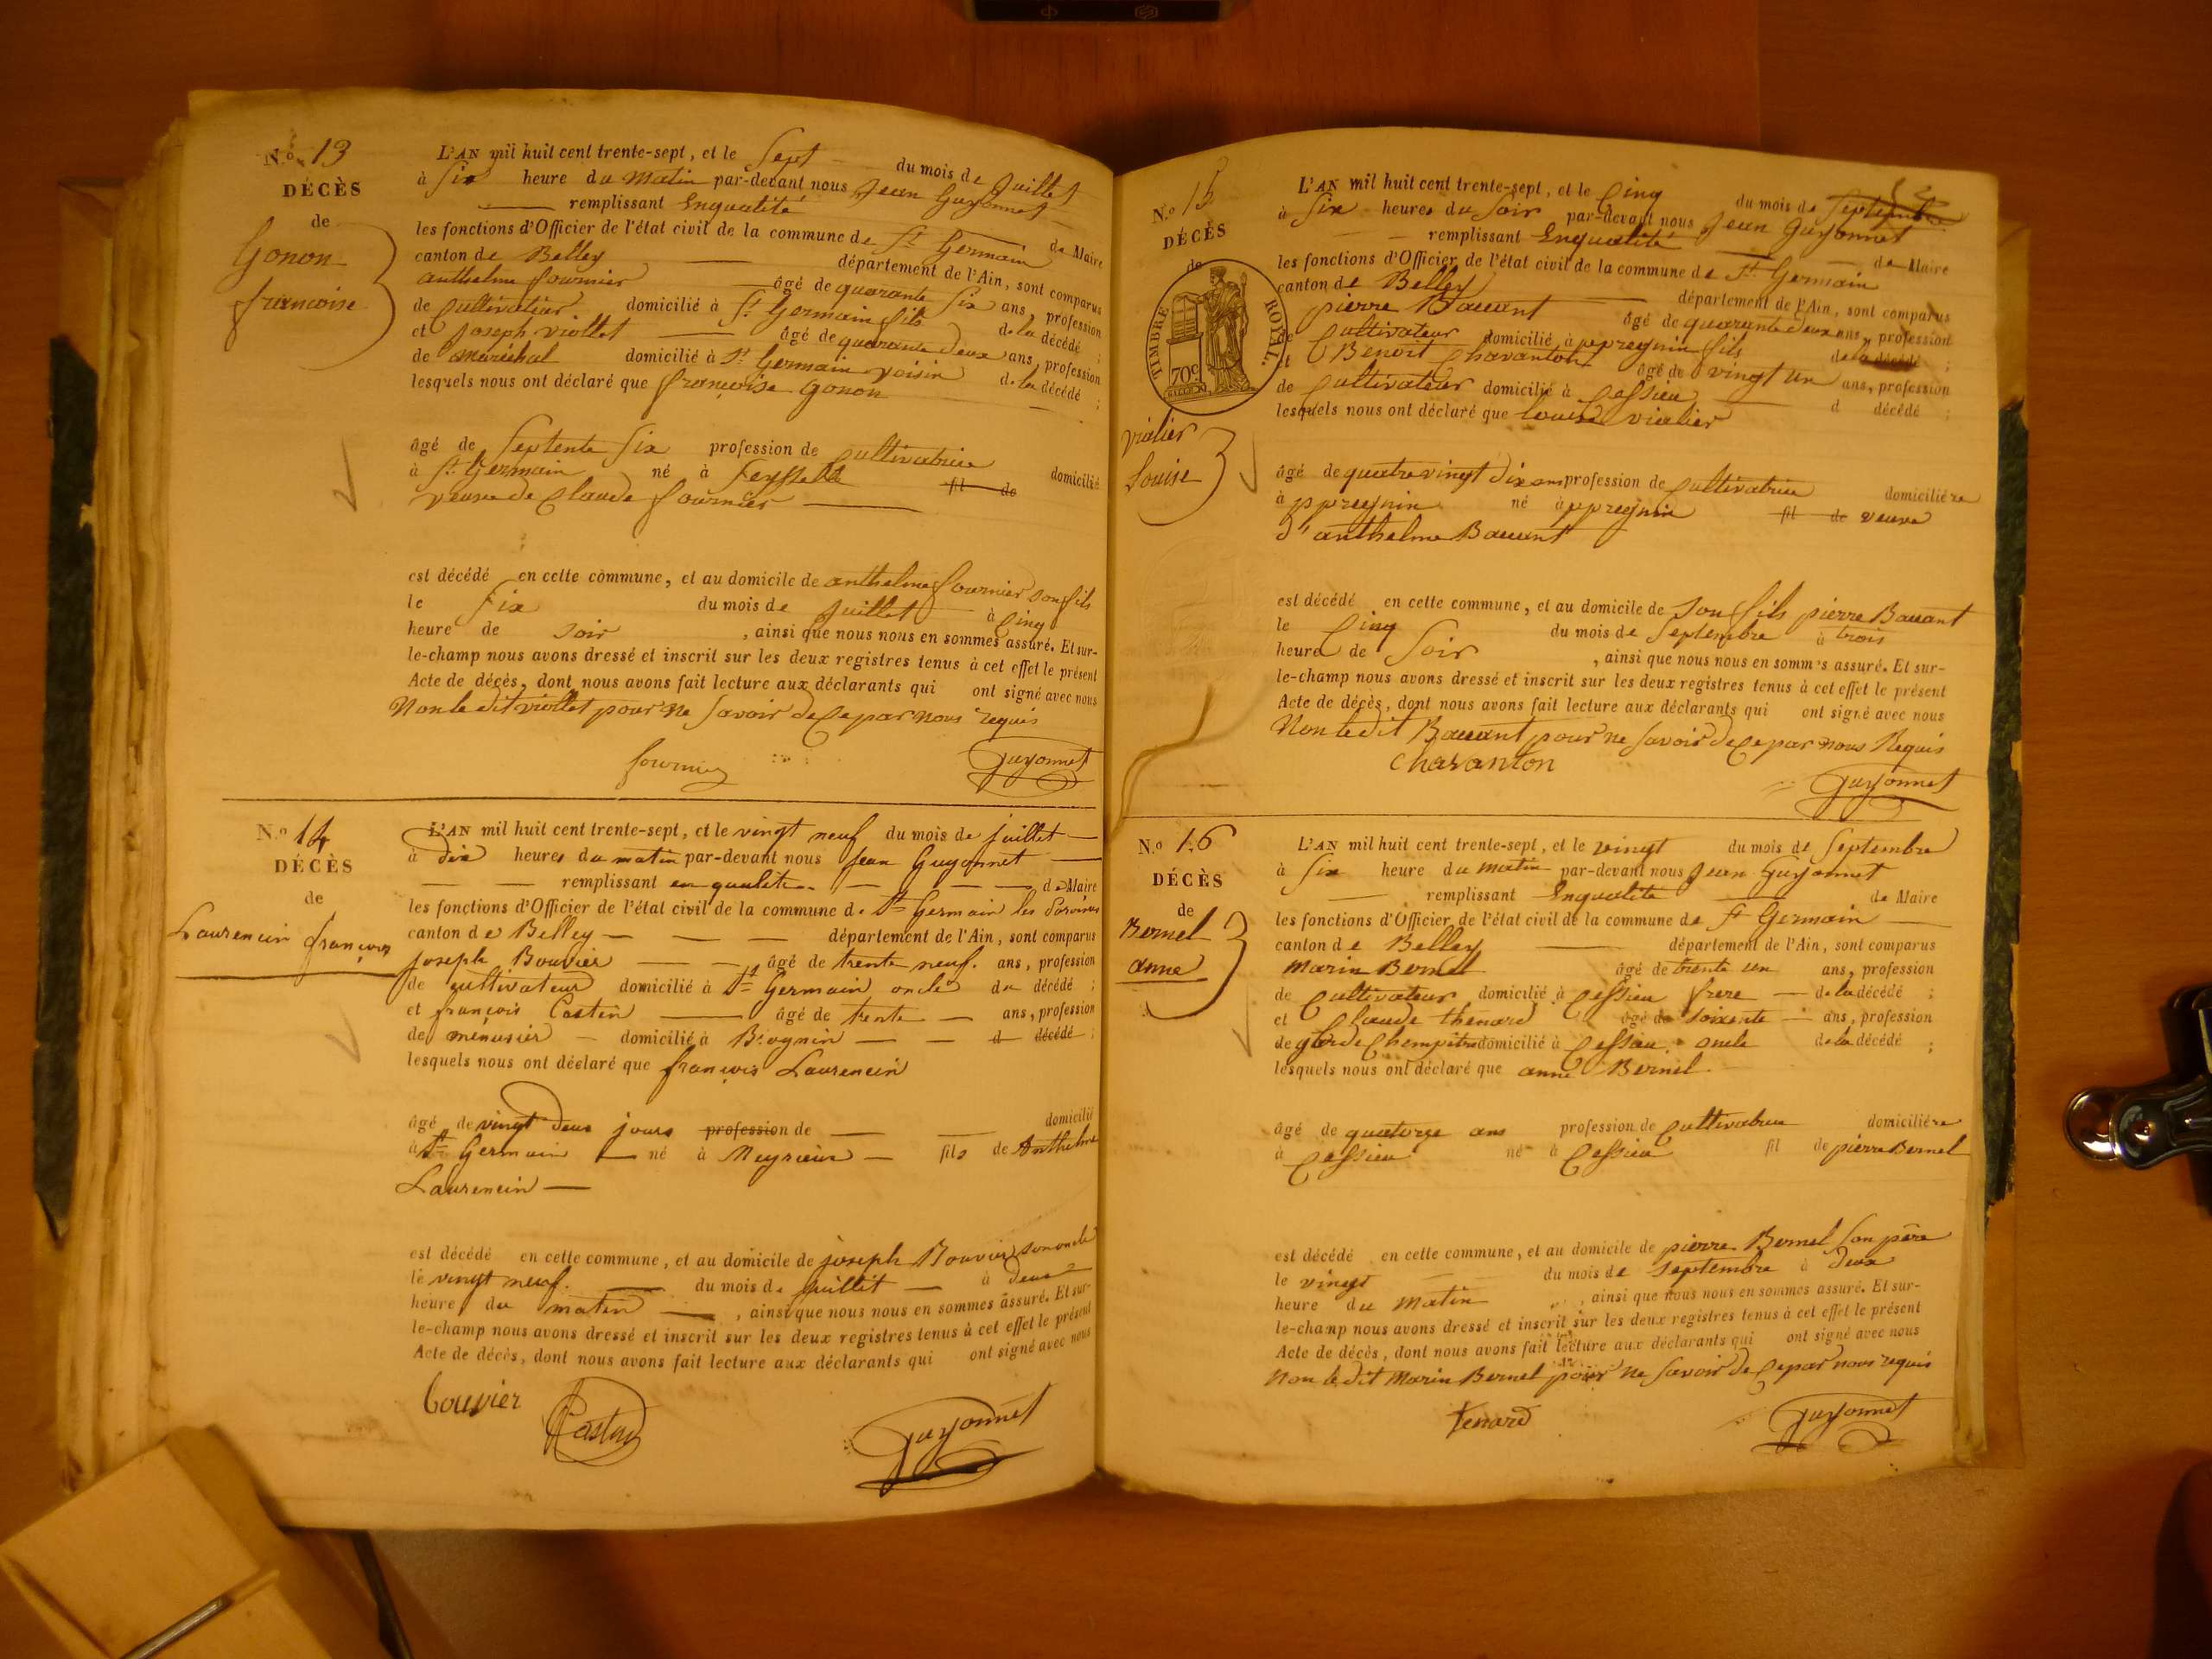 N.º 13
DÉCÈS
de
Gonon
françoise
L'AN mil huit cent trente-sept, et le Sept du mois de Juillet
à Six heure du Matin par-devant nous Jean Guyonnet
remplissant Enqualité de Maire
les fonctions d'Officier de l'état civil de la commune de St Germain
canton de Belley département de l'Ain, sont comparus
anthelme fournier âgé de quarante Six ans, profession
de Cultivateur domicilié à St Germain fils de la décédé ;
et Joseph viollet âgé de quarante Deux ans, profession
de Maréchal domicilié à St Germain voisin de la décédé ;
lesquels nous ont déclaré que françoise Gonon
âgé de Septente Six profession de Cultivatrice domicilié
à St Germain né à fil de
veuve de Claude fournier
est décédé en cette commune, et au domicile de anthelme fournier son fils
le Six du mois de Juillet à Cinq
heure de Soir , ainsi que nous nous en sommes assuré. Et sur-
le-champ nous avons dressé et inscrit sur les deux registres tenus à cet effet le présent
Acte de décès, dont nous avons fait lecture aux déclarants qui ont signé avec nous
Non le dit viollet pour ne Savoir de Ce par nous requis
fournier Guyonnet
N.º 14
DÉCÈS
de
Laurencin françois
L'AN mil huit cent trente-sept, et le vingt neuf du mois de juillet
à dix heures du matin par-devant nous Jean Guyonnet
remplissant en qualité de Maire
les fonctions d'Officier de l'état civil de la commune de St Germain les Paroisses
canton de Belley département de l'Ain, sont comparus
joseph Bouvier âgé de trente neuf ans, profession
de cultivateur domicilié à St Germain oncle du décédé ;
et françois Castin âgé de trente ans, profession
de menusier domicilié à Brognin d décédé ;
lesquels nous ont déclaré que françois Laurencin
âgé de vingt Deux jours profession de domicilié
à St Germain né à Meyrieux fils de Anthelme
Laurencin
est décédé en cette commune, et au domicile de joseph Bouvier son oncle
le vingt neuf du mois de juillet à deux
heure du matin , ainsi que nous nous en sommes assuré. Et sur-
le-champ nous avons dressé et inscrit sur les deux registres tenus à cet effet le présent
Acte de décès, dont nous avons fait lecture aux déclarants qui ont signé avec nous
bouvier Guyonnet
N.º 15
DÉCÈS
de
TIMBRE ROYAL.
70c
vialier
Louise
L'AN mil huit cent trente-sept, et le Cinq du mois de Septembre
à Six heures du Soir par-devant nous Jean Guyonnet
remplissant Enqualité de Maire
les fonctions d'Officier de l'état civil de la commune de St Germain
canton de Belley département de l'Ain, sont comparus
pierre Bavant âgé de quarante deux ans, profession
de Cultivateur domicilié à ppregnin fils de la décédé ;
et Benoit Chavanton âgé de vingt un ans, profession
de Cultivateur domicilié à Cessieu d décédé ;
lesquels nous ont déclaré que Louise vialier
âgé de quatre vingt Dix ans profession de Cultivatrice domiciliére
à ppregnin né à ppregnin fil de veuve
d'anthelme Bavant
est décédé en cette commune, et au domicile de Son fils pierre Bavant
le Cinq du mois de Septembre à trois
heure de Soir , ainsi que nous nous en sommes assuré. Et sur-
le-champ nous avons dressé et inscrit sur les deux registres tenus à cet effet le présent
Acte de décès, dont nous avons fait lecture aux déclarants qui ont signé avec nous
Non le dit Bavant pour ne Savoir de Ce par nous Requis
Chavanton
Guyonnet
N.º 16
DÉCÈS
de
Bernel
anne
L'AN mil huit cent trente-sept, et le vingt du mois de Septembre
à Six heure du matin par-devant nous Jean Guyonnet
remplissant Enqualité de Maire
les fonctions d'Officier de l'état civil de la commune de St Germain
canton de Belley département de l'Ain, sont comparus
Marin Bernel âgé de trente un ans, profession
de Cultivateur domicilié à Cessieu frere de la décédé ;
et Claude thenard âgé de Soixente ans, profession
de garde Champitre domicilié à Cessieu oncle de la décédé ;
lesquels nous ont déclaré que anne Bernel
âgé de quatorze ans profession de Cultivatrice domiciliére
à Cessieu né à Cessieu fil de pierre Bernel
est décédé en cette commune, et au domicile de pierre Bernel Son père
le vingt du mois de Septembre à Deux
heure du Matin , ainsi que nous nous en sommes assuré. Et sur-
le-champ nous avons dressé et inscrit sur les deux registres tenus à cet effet le présent
Acte de décès, dont nous avons fait lecture aux déclarants qui ont signé avec nous
Non le dit Marin Bernel pour ne Savoir de Ce par nous requis
tenard
Guyonnet